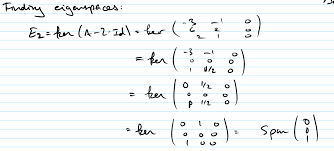 Finding eigenspaces:
E₂ = ker (A - 2·Id) = ker ( -3 -1 0 ; 6 2 0 ; 2 1 0 )
= ker ( -3 -1 0 ; 0 0 0 ; 1 1/2 0 )
= ker ( 0 1/2 0 ; 0 0 0 ; 1/2 0 )
= ker ( 0 1 0 ; 0 0 0 ; 1 0 0 ) = Span ( 0 ; 0 ; 1 )